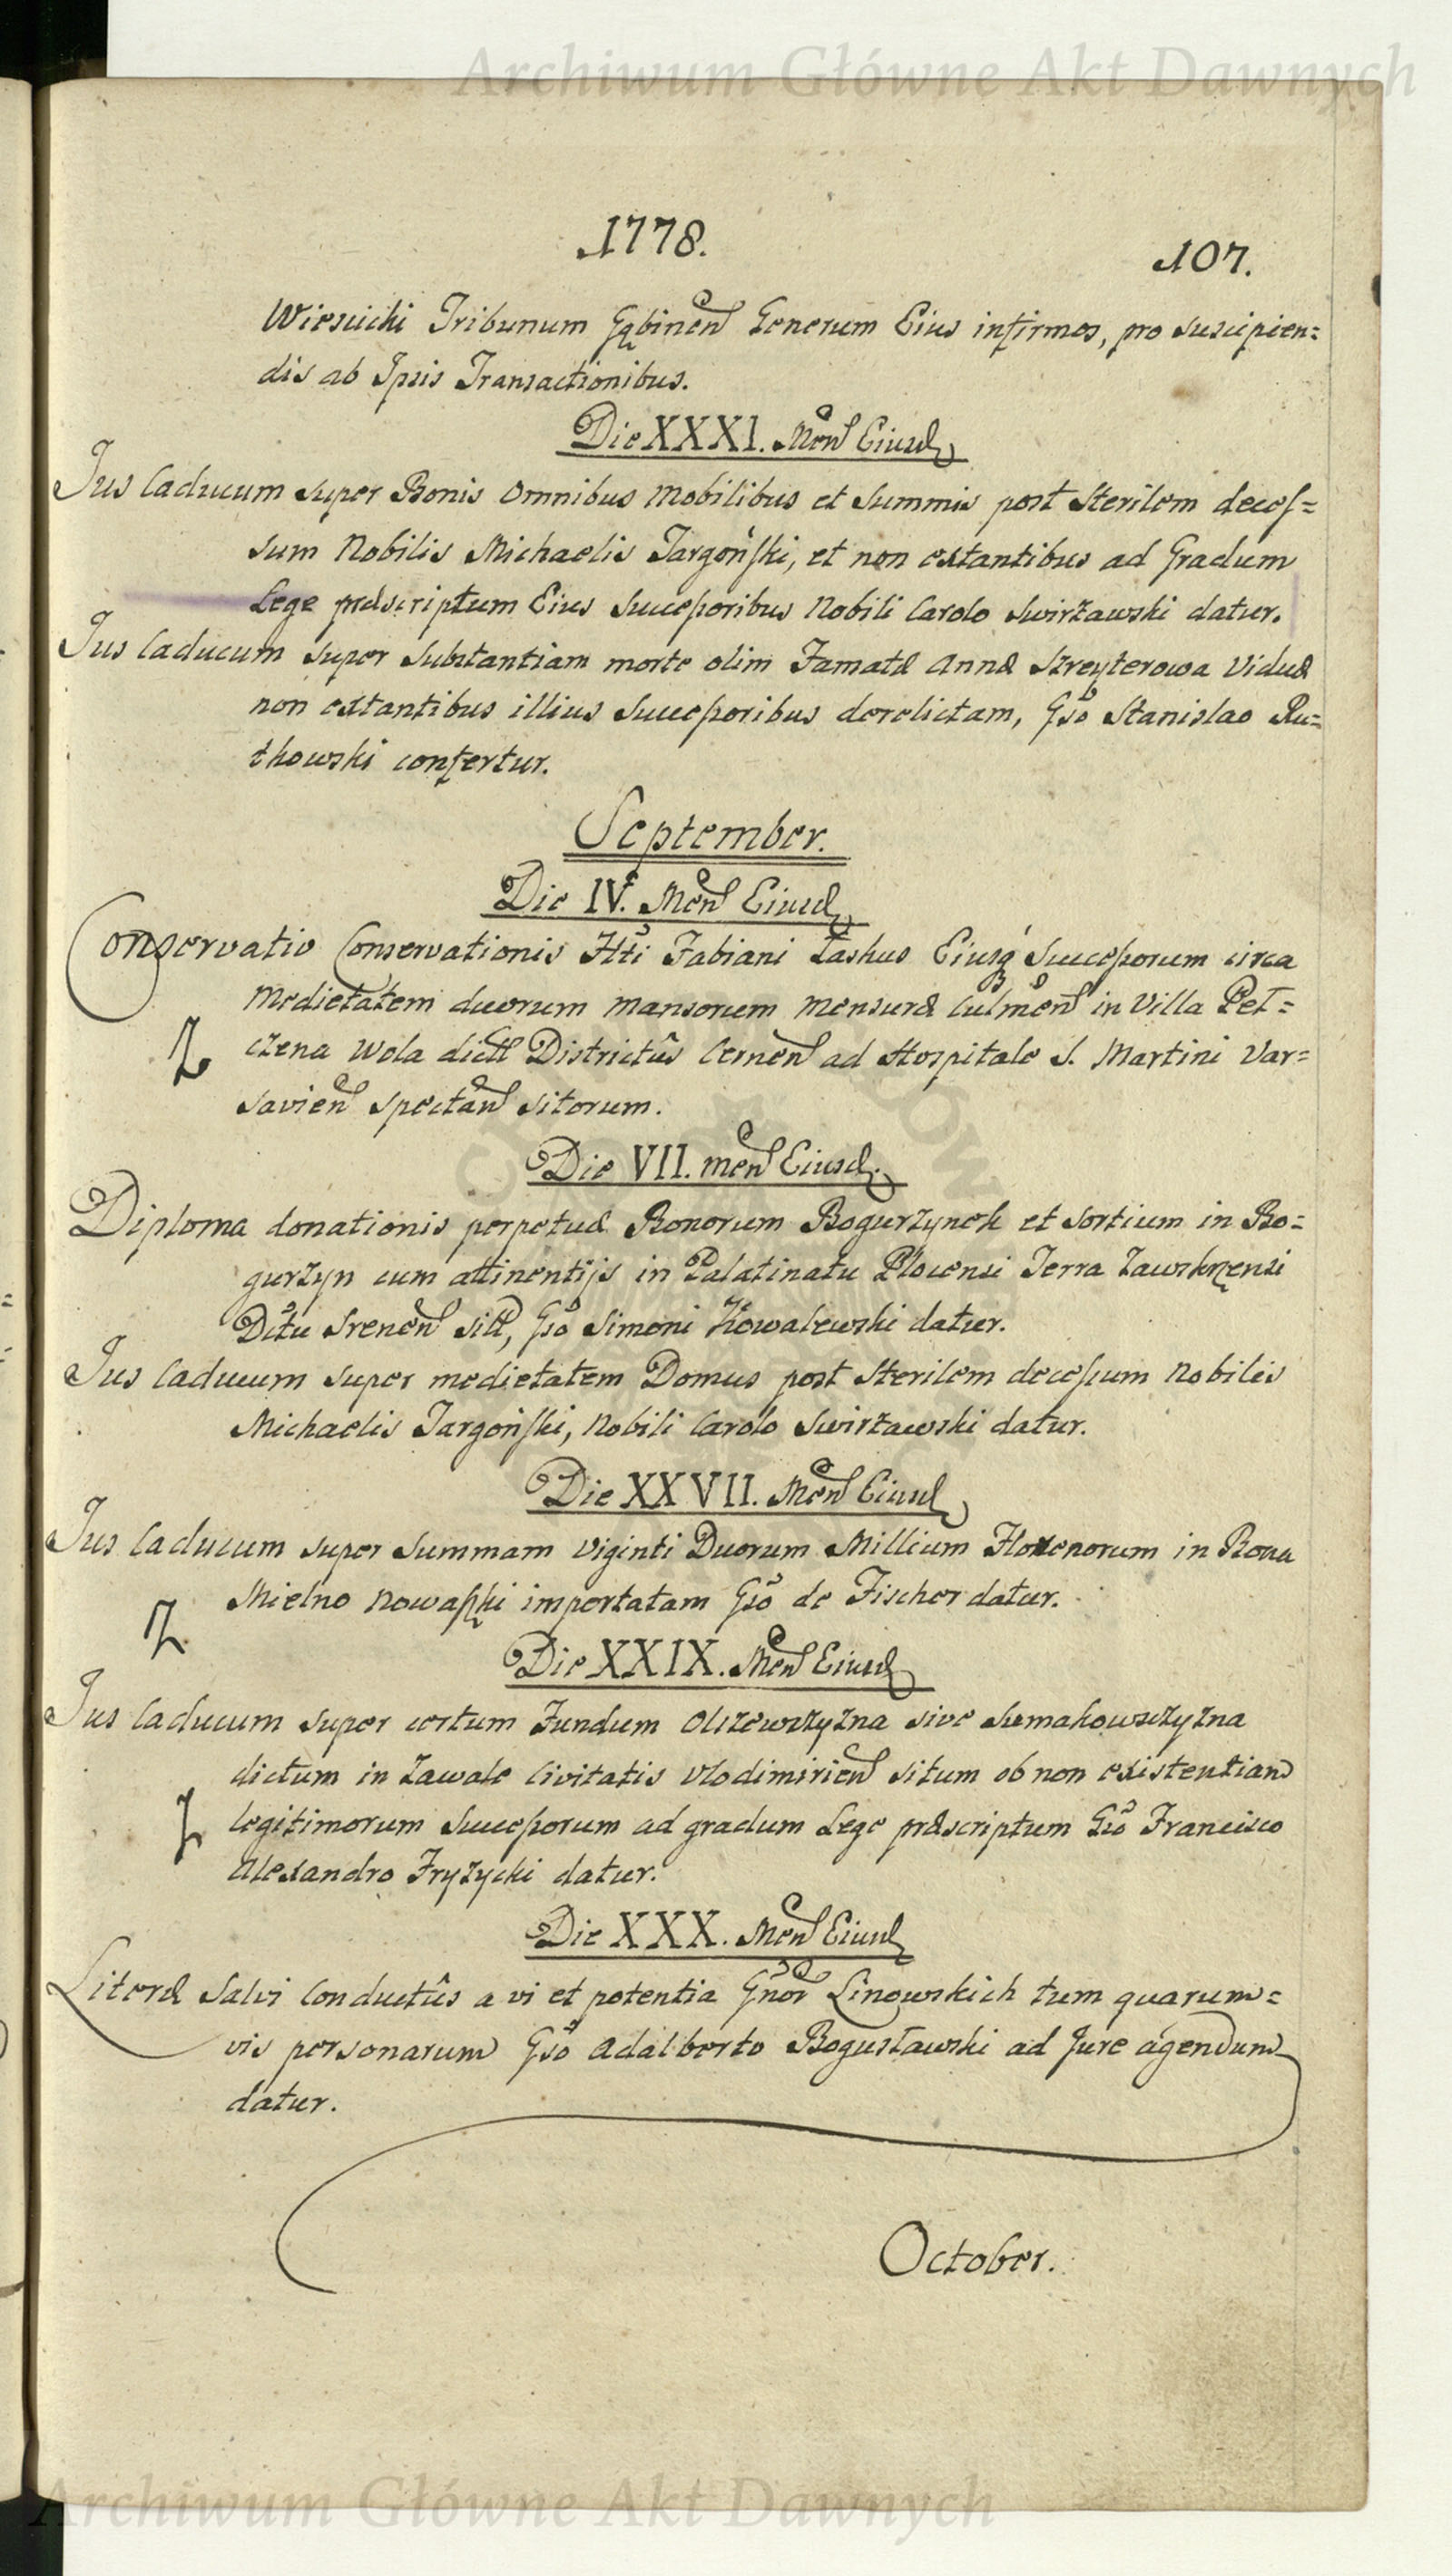 Archiwum Główne Akt Dawnych
1778.
107.
Wiesicki Tribunum Gąbinen Generum Eius infirmos, pro suscipien=
dis ab Ipsis Transactionibus.
Die XXXI. Men Eiusd
Jus Caducum super Bonis Omnibus Mobilibus et Summis post Sterilem deces=
sum Nobilis Michaelis Targoński, et non extantibus ad Gradum
Lege præscriptum Eius Successoribus Nobili Carolo Swirżawski datur.
Jus Caducum super Substantiam morte olim Famatæ Annæ Szreyterowa Viduæ
non extantibus illius Successoribus derelictam, Gso Stanislao Ru=
tkowski confertur.
September.
Die IV. Men Eiusd
Conservatio Conservationis Htti Fabiani Laskus Eiusq Successorum circa
Medietatem duorum Mansorum Mensuræ Culmen in Villa Pet=
czena Wola dict Districtûs Cernen ad Hospitale S. Martini Var=
savien spectan sitorum.
Die VII. men Eiusd.
Diploma donationis perpetuæ Bonorum Bogurzynek et Sortium in Bo=
gurzyn cum attinentijs in Palatinatu Plocensi Terra Zawskrzensi
Dttu Srenen sitt, Gso Simoni Kowalewski datur.
Jus Caducum super medietatem Domus post Sterilem decessum Nobilis
Michaelis Targoński, Nobili Carolo Swirżawski datur.
Die XXVII. Men Eiusd
Jus Caducum super Summam Viginti Duorum Millium Florenorum in Bona
Mielno Nowaszki importatam Gso de Fischer datur.
Die XXIX. Men Eiusd
Jus Caducum super certum Fundum Olszewszyzna sive Sumakowszczyzna
dictum in Zawale Civitatis Vlodimirien situm ob non existentiam
legitimorum Successorum ad gradum Lege præscriptum Gso Francisco
Alexandro Fryzycki datur.
Die XXX. Men Eiusd
Literæ Salvi Conductûs a vi et potentia Gnor Linowskich tum quarum=
vis personarum Gso Adalberto Bogusławski ad Jure agendum
datur.
October.
Archiwum Główne Akt Dawnych